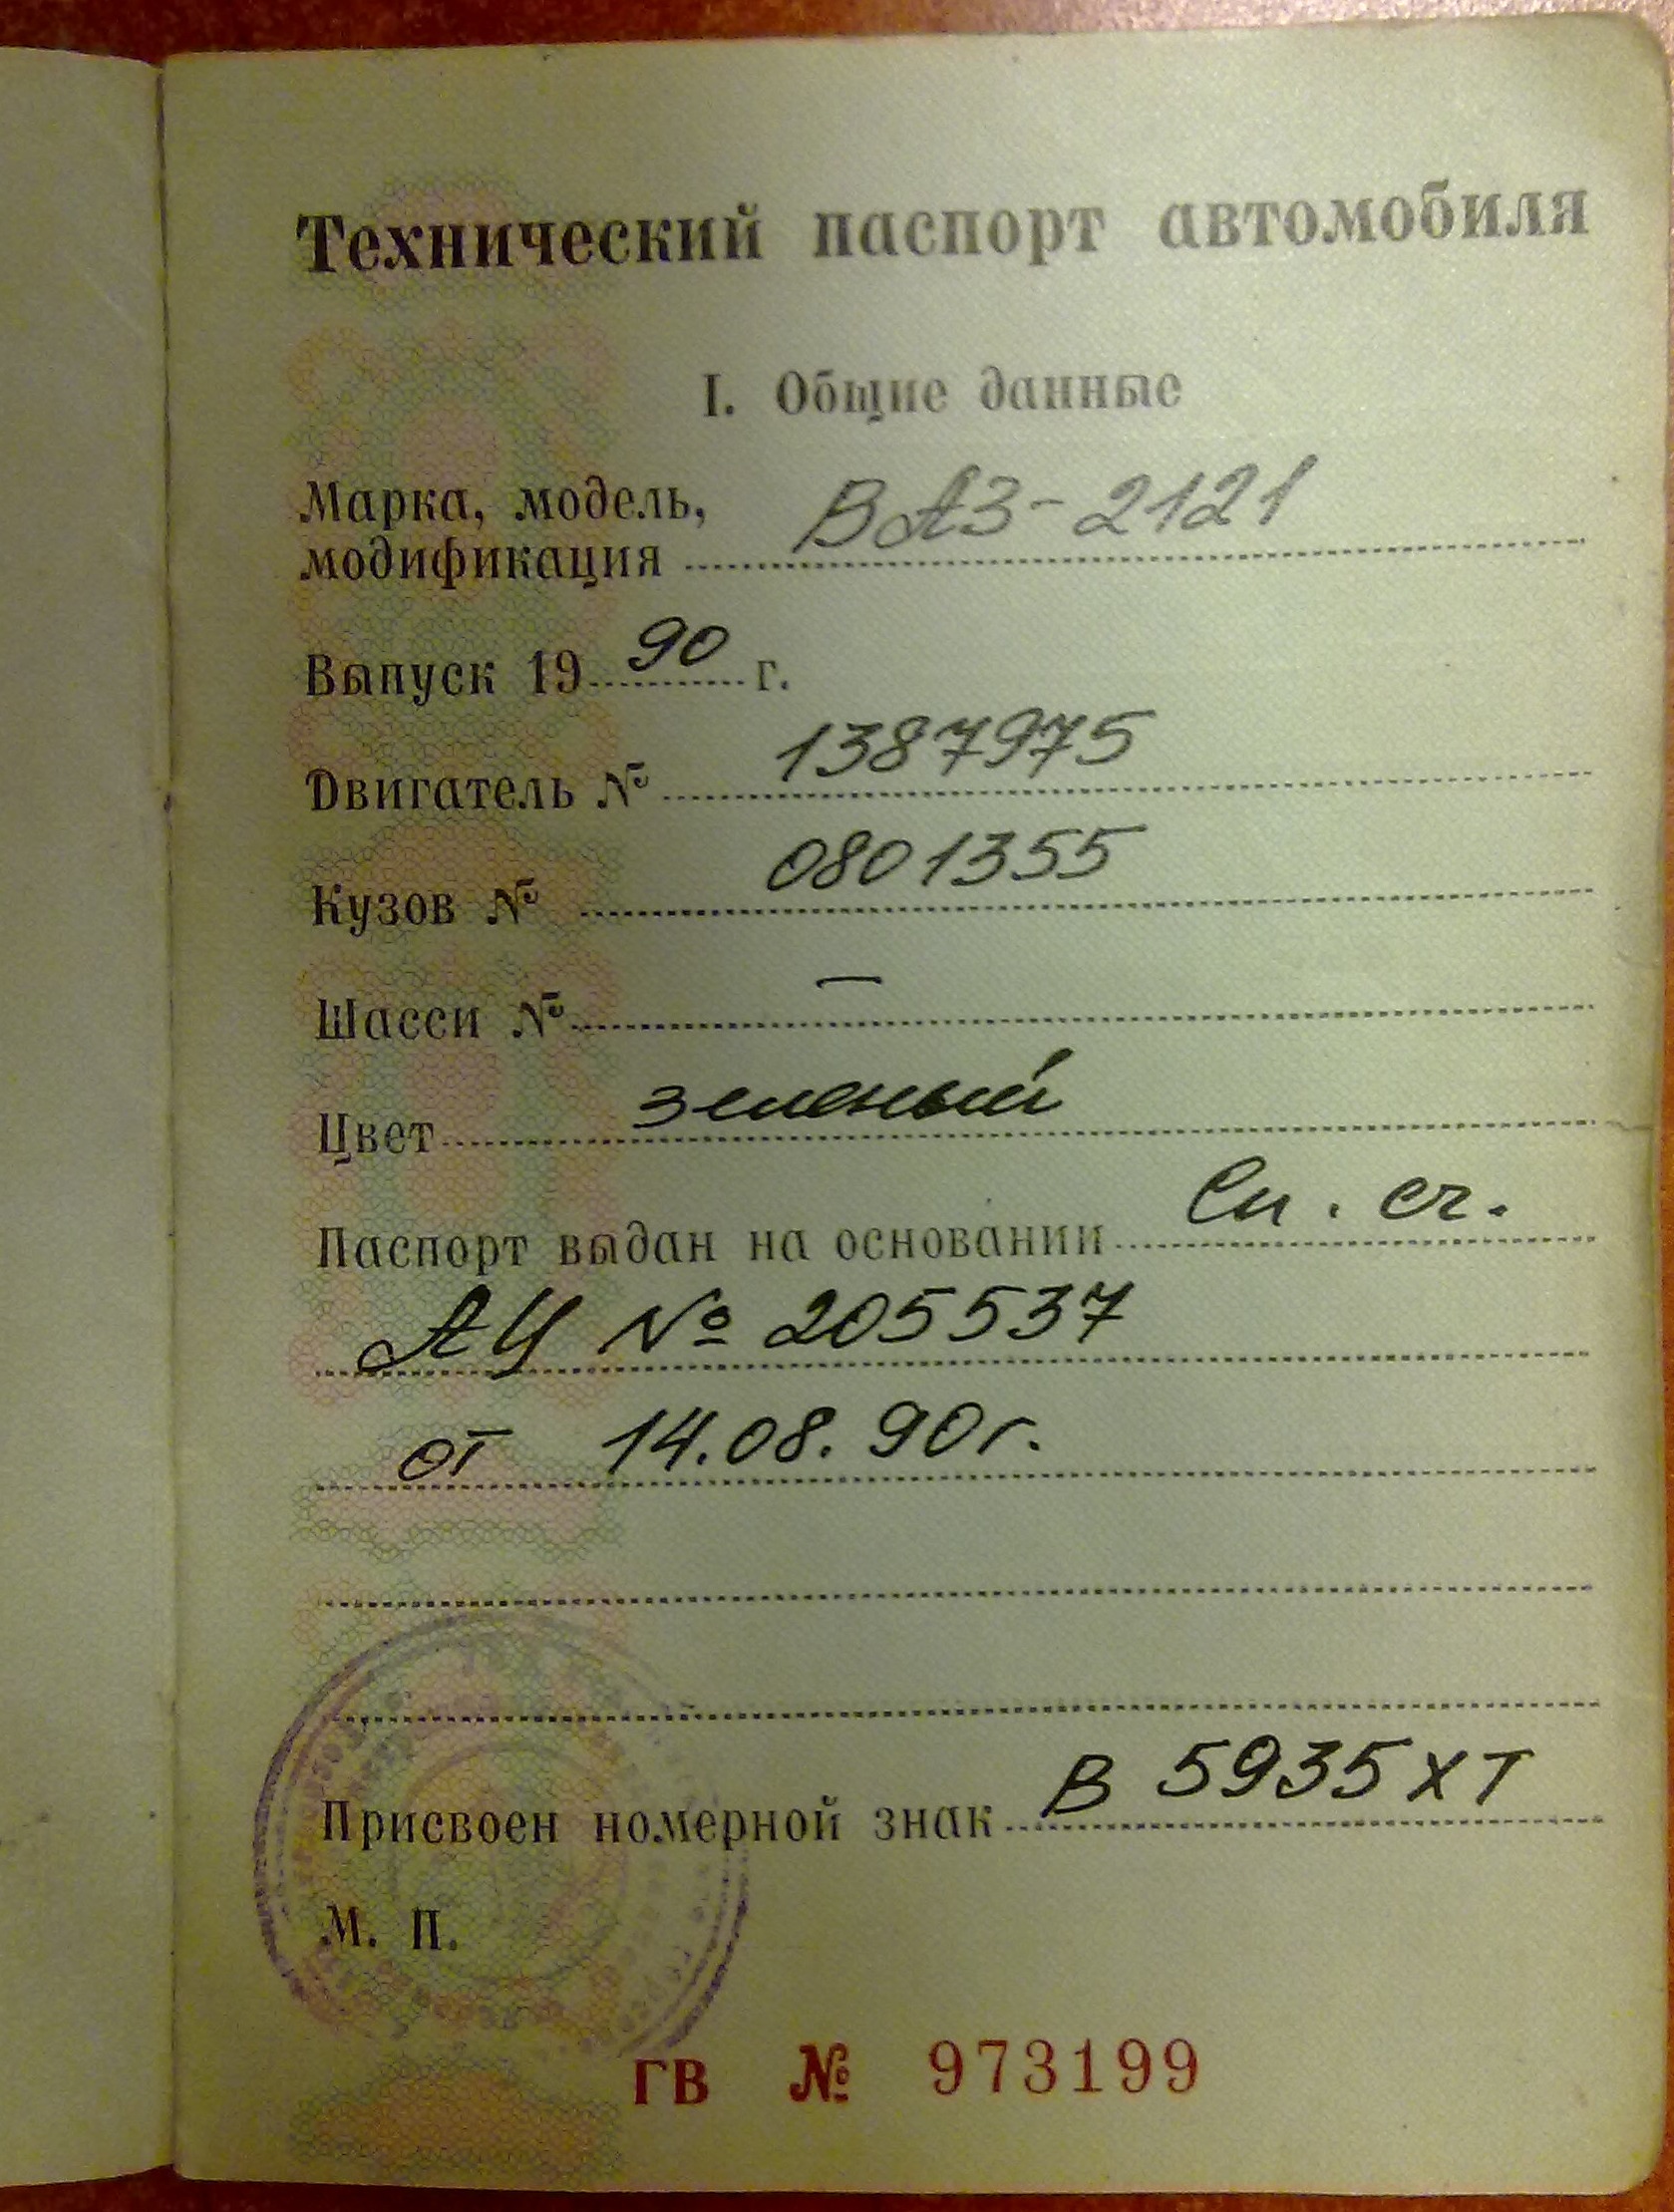 Технический паспорт автомобиля
I. Общие данные
Марка, модель,
модификация ВАЗ-2121
Выпуск 1990 г.
Двигатель № 1387975
Кузов № 0801355
Шасси № —
Цвет зеленый
Паспорт выдан на основании Сп. сч.
АЦ № 205537
от 14.08.90г.
Присвоен номерной знак В 5935 ХТ
М. П.
ГВ № 973199